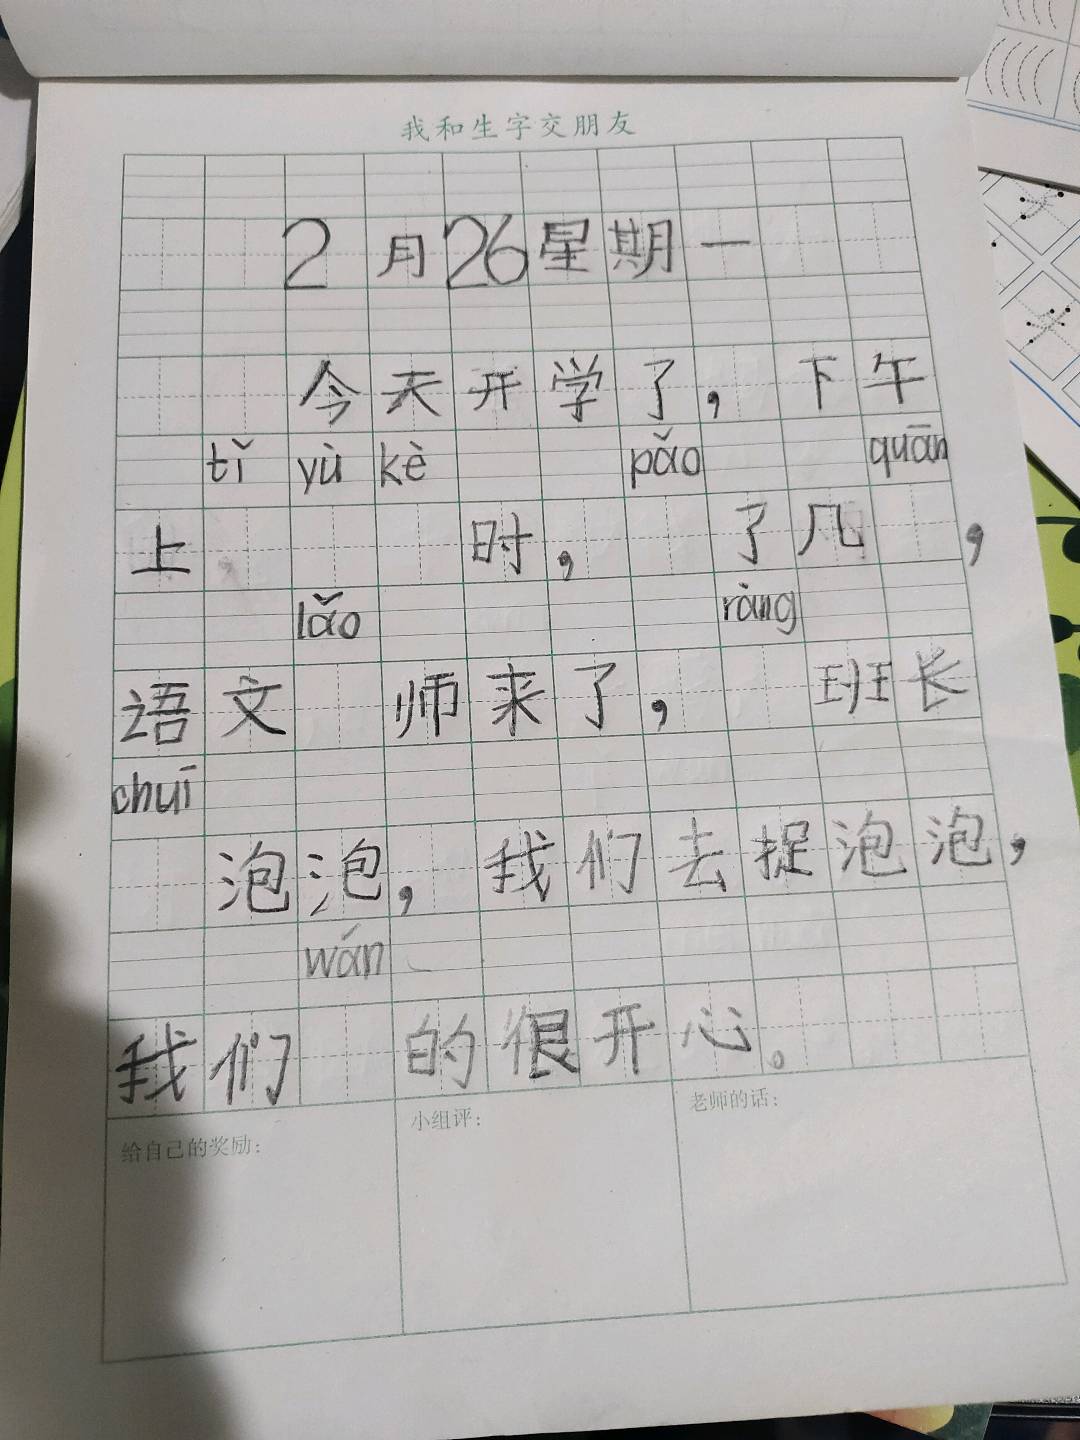 我和生字交朋友
2月26星期一
今天开学了，下午
tǐ yù kè pǎo quān
上 时， 了几 ，
lǎo ràng
语文 师来了， 班长
chuī
泡泡，我们去捉泡泡，
wán
我们 的很开心。
给自己的奖励：
小组评：
老师的话：